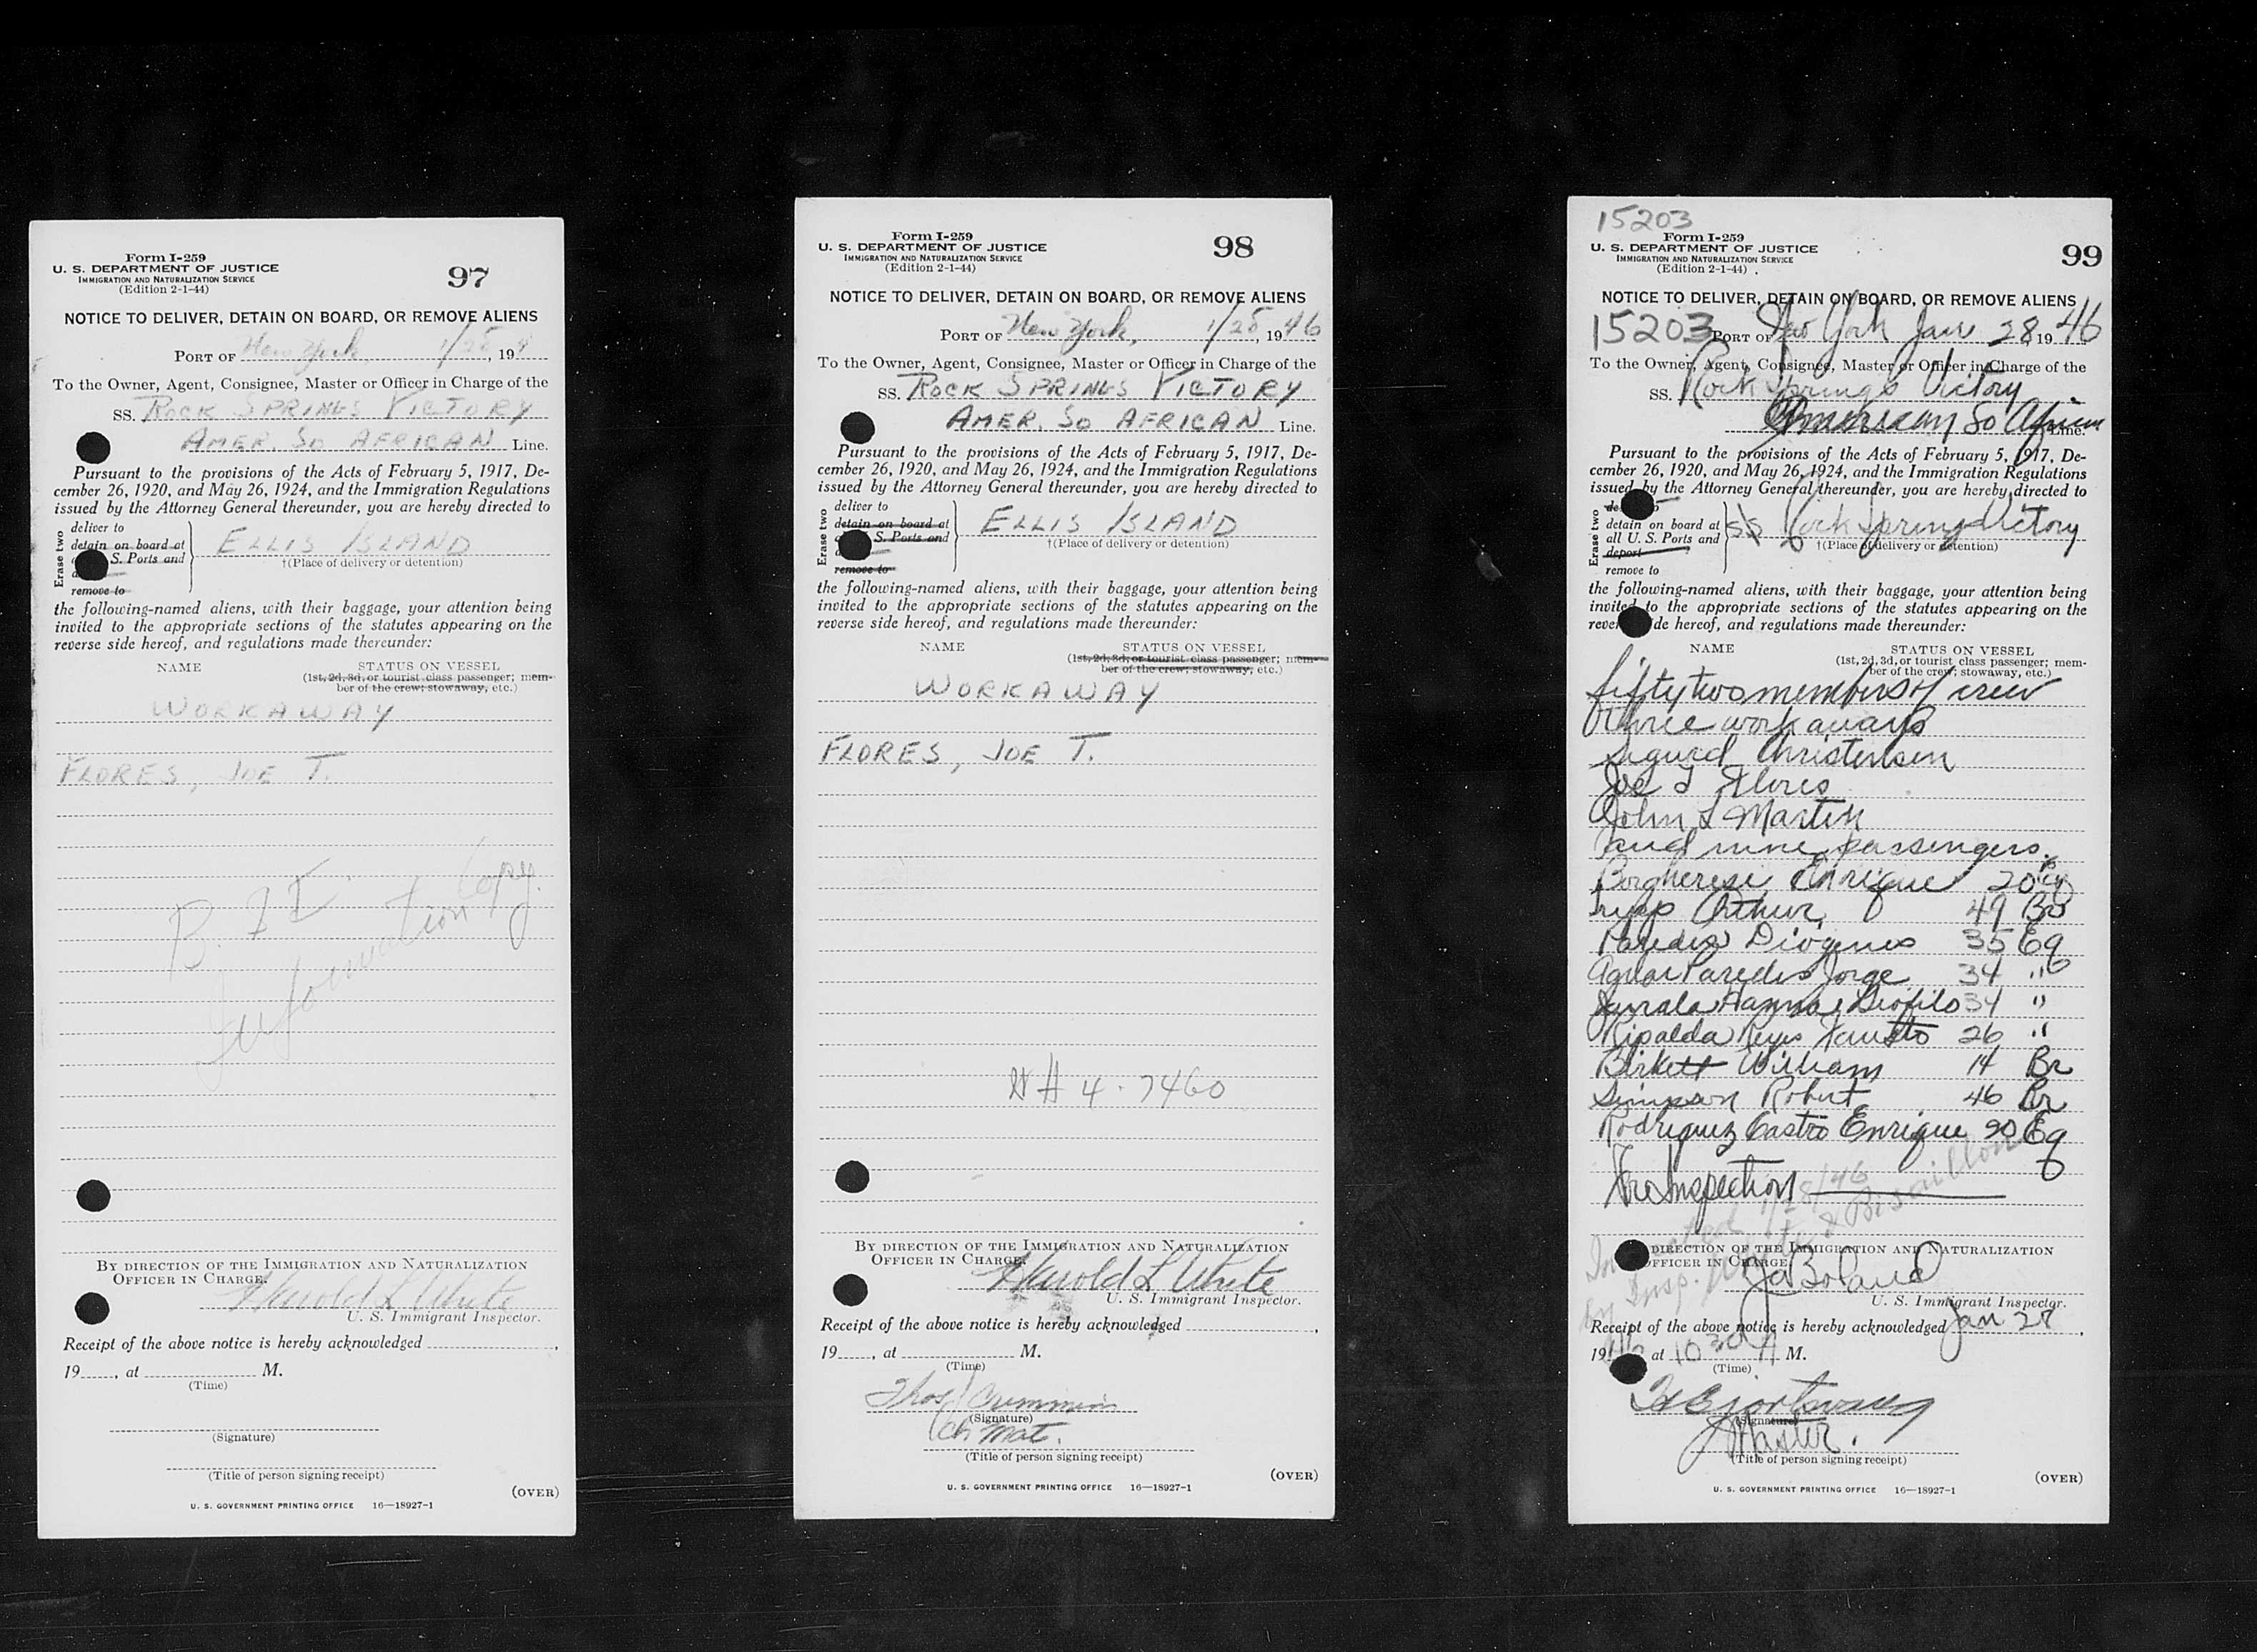 Form I-259
U. S. DEPARTMENT OF JUSTICE
IMMIGRATION AND NATURALIZATION SERVICE
(Edition 2-1-44)
97
NOTICE TO DELIVER, DETAIN ON BOARD, OR REMOVE ALIENS
PORT OF New York 1/28, 194
To the Owner, Agent, Consignee, Master or Officer in Charge of the
SS. ROCK SPRINGS VICTORY
AMER. SO AFRICAN Line.
Pursuant to the provisions of the Acts of February 5, 1917, De-
cember 26, 1920, and May 26, 1924, and the Immigration Regulations
issued by the Attorney General thereunder, you are hereby directed to
Erase two
deliver to
detain on board at
S. Ports and
remove to
ELLIS ISLAND
†(Place of delivery or detention)
the following-named aliens, with their baggage, your attention being
invited to the appropriate sections of the statutes appearing on the
reverse side hereof, and regulations made thereunder:
NAME STATUS ON VESSEL
(1st, 2d, 3d, or tourist class passenger; mem-
ber of the crew; stowaway, etc.)
WORKAWAY
FLORES, JOE T.
Information Copy
BY DIRECTION OF THE IMMIGRATION AND NATURALIZATION
OFFICER IN CHARGE.
Harold L White
U. S. Immigrant Inspector.
Receipt of the above notice is hereby acknowledged ,
19 , at M.
(Time)
(Signature)
(Title of person signing receipt)
(OVER)
U. S. GOVERNMENT PRINTING OFFICE 16—18927-1
Form I-259
U. S. DEPARTMENT OF JUSTICE
IMMIGRATION AND NATURALIZATION SERVICE
(Edition 2-1-44)
98
NOTICE TO DELIVER, DETAIN ON BOARD, OR REMOVE ALIENS
PORT OF New York, 1/28, 1946
To the Owner, Agent, Consignee, Master or Officer in Charge of the
SS. ROCK SPRINGS VICTORY
AMER. SO AFRICAN Line.
Pursuant to the provisions of the Acts of February 5, 1917, De-
cember 26, 1920, and May 26, 1924, and the Immigration Regulations
issued by the Attorney General thereunder, you are hereby directed to
Erase two
deliver to
detain on board at
S. Ports and
remove to
ELLIS ISLAND
†(Place of delivery or detention)
the following-named aliens, with their baggage, your attention being
invited to the appropriate sections of the statutes appearing on the
reverse side hereof, and regulations made thereunder:
NAME STATUS ON VESSEL
(1st, 2d, 3d, or tourist class passenger; mem-
ber of the crew; stowaway, etc.)
WORKAWAY
FLORES, JOE T.
4-7460
BY DIRECTION OF THE IMMIGRATION AND NATURALIZATION
OFFICER IN CHARGE.
Harold L White
U. S. Immigrant Inspector.
Receipt of the above notice is hereby acknowledged ,
19 , at M.
(Time)
Thos J Cummins
(Signature)
Ch Mat.
(Title of person signing receipt)
(OVER)
U. S. GOVERNMENT PRINTING OFFICE 16—18927-1
15203
Form I-259
U. S. DEPARTMENT OF JUSTICE
IMMIGRATION AND NATURALIZATION SERVICE
(Edition 2-1-44)
99
NOTICE TO DELIVER, DETAIN ON BOARD, OR REMOVE ALIENS
15203 PORT OF New York Jan 28 1946
To the Owner, Agent, Consignee, Master or Officer in Charge of the
SS. Rock Springs Victory
American So African Line.
Pursuant to the provisions of the Acts of February 5, 1917, De-
cember 26, 1920, and May 26, 1924, and the Immigration Regulations
issued by the Attorney General thereunder, you are hereby directed to
Erase two
detain on board at
all U. S. Ports and
deport
remove to
SS Rock Springs Victory
†(Place of delivery or detention)
the following-named aliens, with their baggage, your attention being
invited to the appropriate sections of the statutes appearing on the
de hereof, and regulations made thereunder:
NAME STATUS ON VESSEL
(1st, 2d, 3d, or tourist class passenger; mem-
ber of the crew; stowaway, etc.)
fifty two members of crew
three workaways
Sigurd Christensen
Joe T Flores
John L Martin
and nine passengers.
Borgherese Enrique 20
Arthur 49 Br
Paredes Diogenes 35 Eq
Agular Paredes Jorge 34 "
Teofilo 34 "
Ripalda Reyes Fausto 26 "
Birkett William 14 Br
Simpson Robert 46 Br
Rodriguez Castro Enrique 20 Eq
Inspection
Inspected 1/28/46
by Insp. White &
DIRECTION OF THE IMMIGRATION AND NATURALIZATION
OFFICER IN CHARGE
J Boland
U. S. Immigrant Inspector.
Receipt of the above notice is hereby acknowledged Jan 28,
1946 at 10 30 A M.
(Time)
(Signature)
Master.
(Title of person signing receipt)
(OVER)
U. S. GOVERNMENT PRINTING OFFICE 16—18927-1